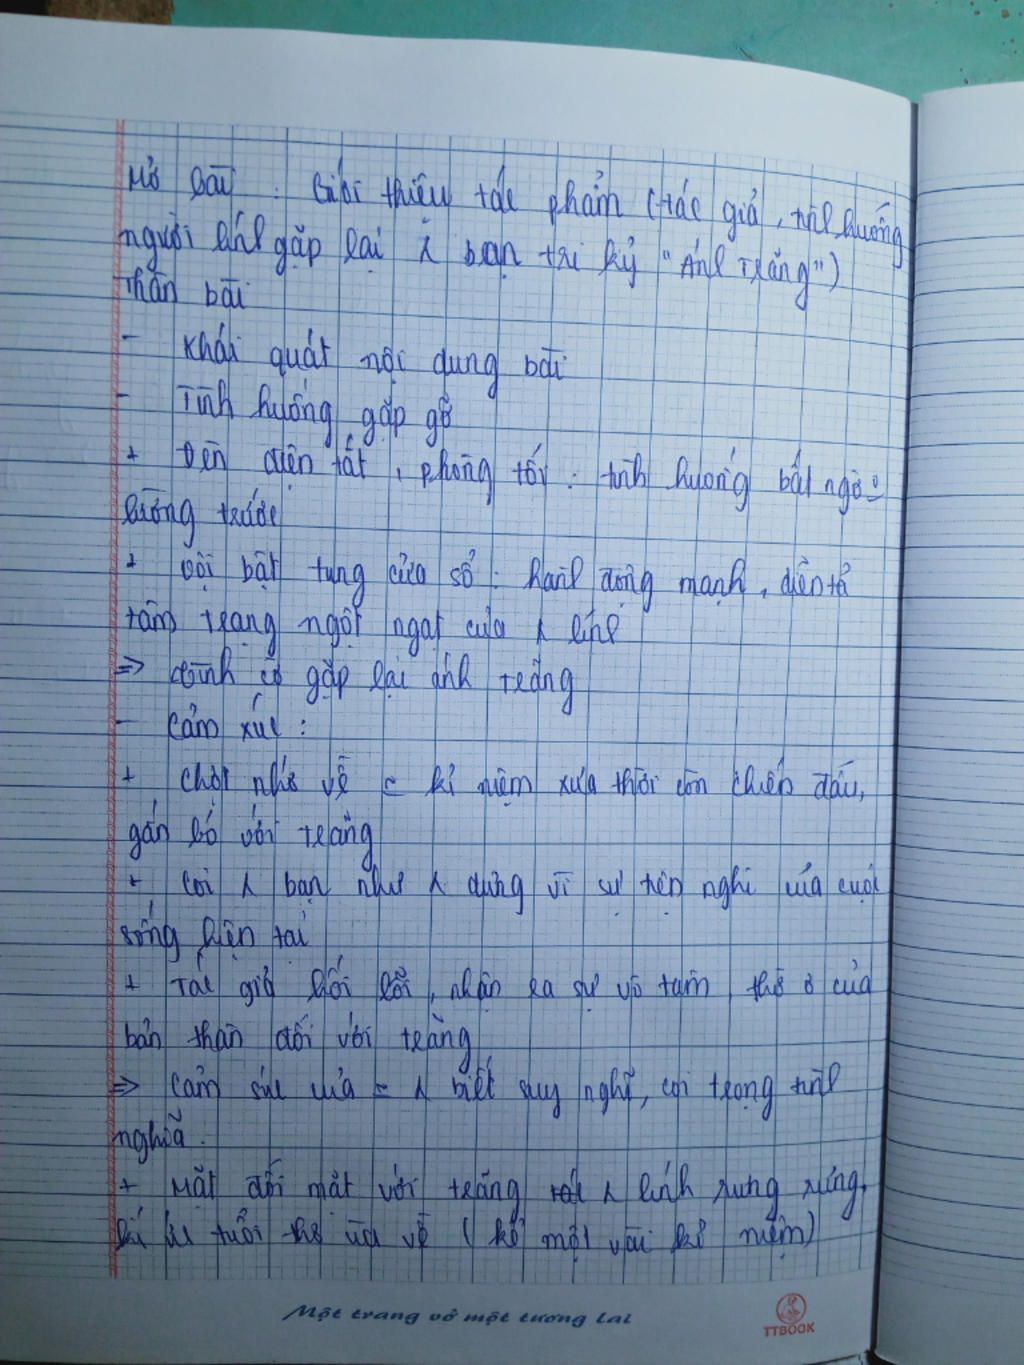 Mở bài : Giới thiệu tác phẩm (tác giả, tình huống
người lính gặp lại λ bạn tri kỷ "Ánh Trăng")
Thân bài
- Khái quát nội dung bài
- Tình huống gặp gỡ
+ Đèn điện tắt, phòng tối : tình huống bất ngờ
lường trước
+ vội bật tung cửa sổ : hành động mạnh, diễn tả
tâm trạng ngột ngạt của λ lính
=> tình cờ gặp lại ánh trăng
- Cảm xúc :
+ Chợt nhớ về = kỉ niệm xưa thời còn chiến đấu,
gắn bó với trăng
+ Coi λ bạn như λ dưng vì sự tiện nghi của cuộc
sống hiện tại
+ Tác giả hối lỗi, nhận ra sự vô tâm, thờ ơ của
bản thân đối với trăng
=> Cảm xúc của = λ biết suy nghĩ, coi trọng tình
nghĩa.
+ Mặt đối mặt với trăng λ lính rưng rưng,
kí ức tuổi thơ ùa về (kể một vài kỉ niệm)
Một trang vở một tương lai
TTBOOK